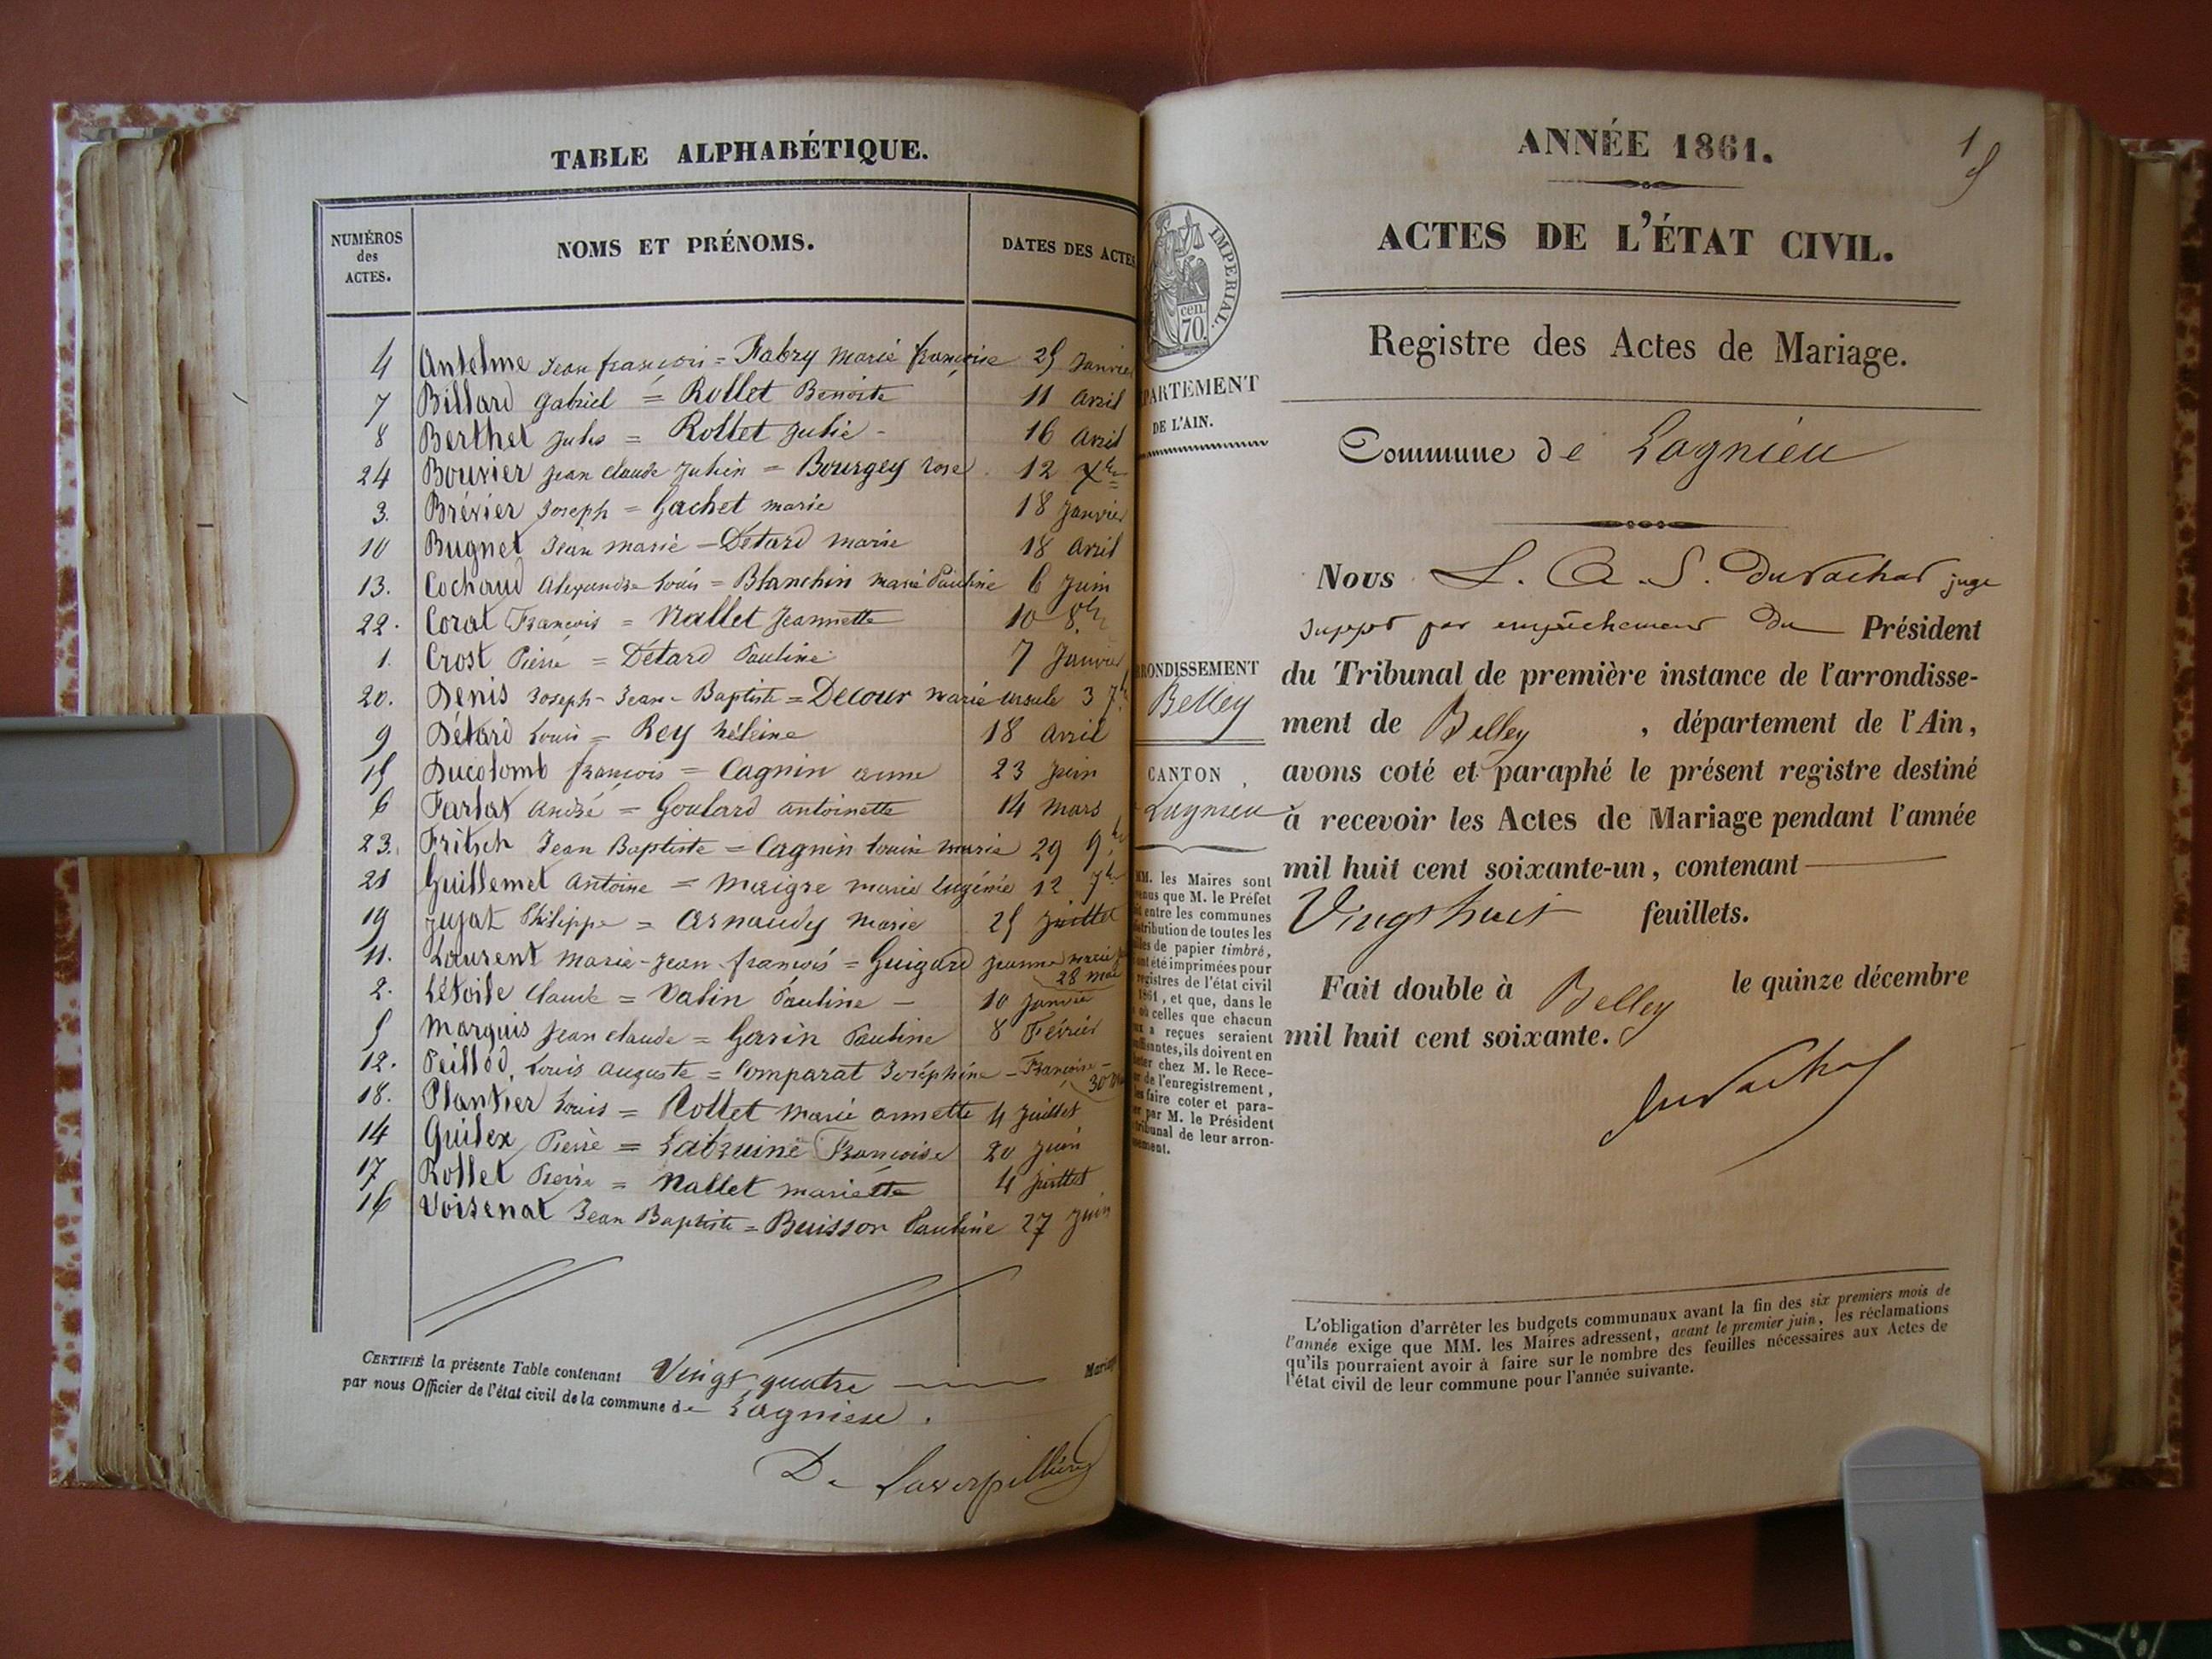 TABLE ALPHABÉTIQUE.
NUMÉROS des ACTES. NOMS ET PRÉNOMS. DATES DES ACTES
4 Antelme Jean françois = Fabry Marie françoise 25 Janvier
7 Billard Gabriel = Rollet Benoite 11 Avril
8 Berthet Jules = Rollet Julie - 16 Avril
24 Bouvier Jean Claude Julien = Bourgey Rose 12 Xbre
3. Brévier Joseph = Gachet marie 18 Janvier
10 Bugnet Jean marie = Détard marie 18 Avril
13. Cochaud Alexandre Louis = Blanchin Marie Pauline 6 Juin
22. Corat François = Nallet Jeannette 10 8bre
1. Crost Pierre = Détard Pauline 7 Janvier
20. Denis Joseph-Jean-Baptiste = Decour Marie Ursule 3 7bre
9 Détard Louis = Rey héleine 18 Avril
15 Ducolomb françois = Cagnin anne 23 Juin
6 Farlat André = Goulard antoinette 14 Mars
23. Fritsch Jean Baptiste = Cagnin Louise marie 29 9bre
21 Guillemet Antoine = Maigre marie Eugénie 12 7bre
19 Jujat Philippe = Arnaudy Marie 25 Juillet
11. Laurent Marie-Jean-françois = Guigard Jeanne marie
28 mai
2. Létoile Claude = Valin Pauline - 10 Janvier
5 Marquis Jean Claude = Garin Pauline 8 Février
12. Peillod, Louis Auguste = Comparat Joséphine - Françoise -
30 Mai
18. Plantier Louis = Rollet Marie annette 4 Juillet
14 Quilex Pierre = Labruine Françoise 20 Juin
17 Rollet Pierre = Nallet mariette 4 Juillet
16 Voisenat Jean Baptiste = Buisson Pauline 27 Juin
CERTIFIÉ la présente Table contenant Vingt quatre Mariag
par nous Officier de l'état civil de la commune de Lagnieu.
De Laverpillière
ANNÉE 1861.
1
ACTES DE L'ÉTAT CIVIL.
IMPERIAL.
cen.
70.
Registre des Actes de Mariage.
PARTEMENT
DE L'AIN.
Commune de Lagnieu
Nous L. A. S. Duvachat juge
suppt par empêchement du Président
du Tribunal de première instance de l'arrondisse-
ment de Belley , département de l'Ain,
avons coté et paraphé le présent registre destiné
à recevoir les Actes de Mariage pendant l'année
mil huit cent soixante-un, contenant
Vingt huit feuillets.
Fait double à Belley le quinze décembre
mil huit cent soixante.
Duvachat
RONDISSEMENT
Belley
CANTON
Lagnieu
MM. les Maires sont
venus que M. le Préfet
entre les communes
tribution de toutes les
lles de papier timbré,
ont été imprimées pour
registres de l'état civil
1861, et que, dans le
où celles que chacun
ux a reçues seraient
uffisantes, ils doivent en
heter chez M. le Rece-
ur de l'enregistrement,
les faire coter et para-
er par M. le Président
tribunal de leur arron-
sement.
L'obligation d'arrêter les budgets communaux avant la fin des six premiers mois de
l'année exige que MM. les Maires adressent, avant le premier juin, les réclamations
qu'ils pourraient avoir à faire sur le nombre des feuilles nécessaires aux Actes de
l'état civil de leur commune pour l'année suivante.